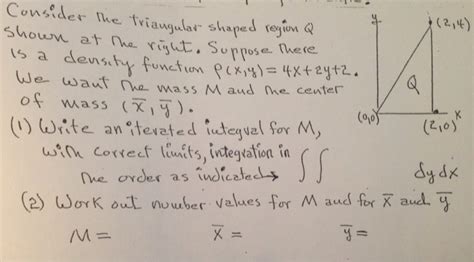 Consider the triangular shaped region Q
shown at the right. Suppose there
is a density function ρ(x,y) = 4x+2y+2.
We want the mass M and the center
of mass (x̅, y̅).
(1) Write an iterated integral for M,
with correct limits, integration in
the order as indicated → ∫∫ dy dx
(2) Work out number values for M and for x̅ and y̅
M = x̅ = y̅ =
y
(2,4)
Q
(0,0)
(2,0)
x